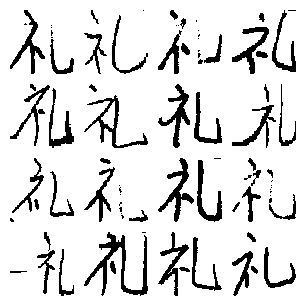 礼礼礼礼
礼礼礼礼
礼礼礼礼
礼礼礼礼